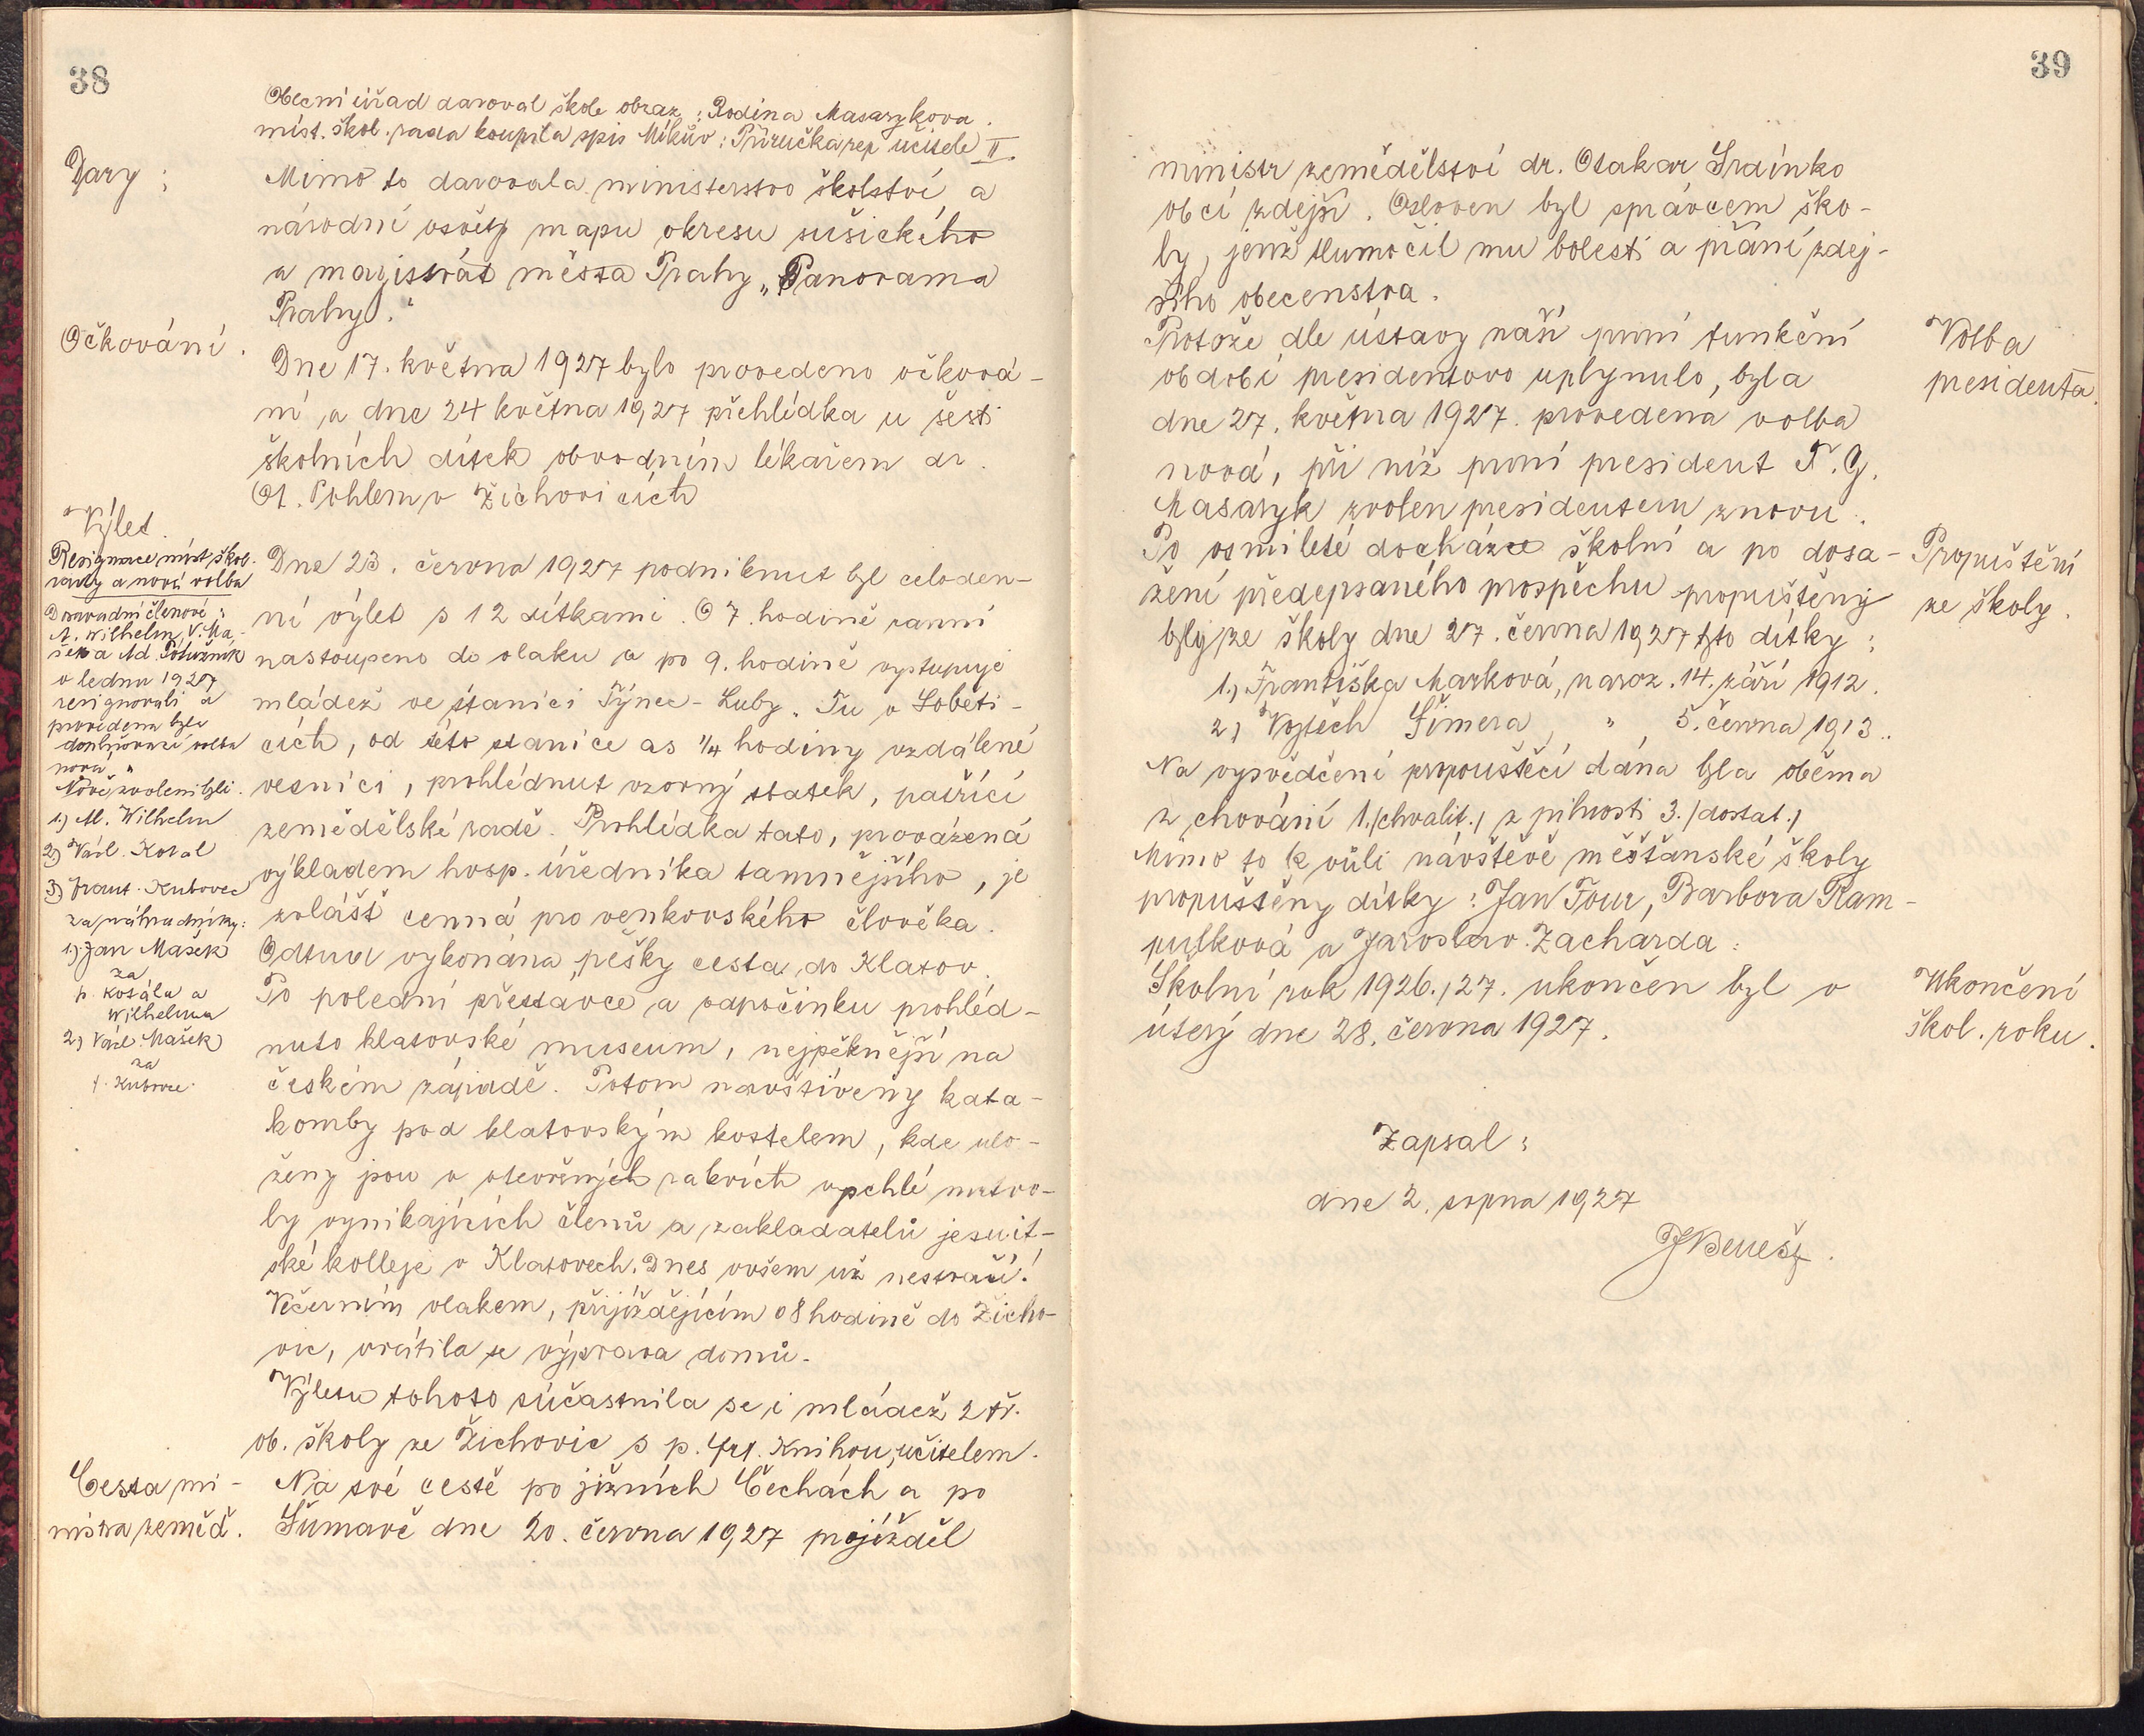 38
Obecní úřad daroval škole obraz: Rodina Masarykova.
míst. škol. rada koupila spis Mikův: Příručka rep učitele II.
Dary:
Mimo to darovala ministerstvo školství a
národní osvěty mapu okresu sušického
a magistrát města Prahy „Panorama
Prahy."
Očkování.
Dne 17. května 1927 bylo provedeno očková-
ní a dne 24 května 1927 přehlídka u šesti
školních dítek obvodním lékařem dr.
Ot. Pohlem v Žichovicích
Výlet.
Dne 23. června 1927 podniknut byl celoden-
ní výlet s 12 dítkami. O 7. hodině ranní
nastoupeno do vlaku a po 9. hodině vystupuje
mládež ve stanici Týnec-Luby. Tu v Soběti-
cích, od této stanice as 1/4 hodiny vzdálené
vesnici, prohlédnut vzorný statek, patřící
zemědělské radě. Prohlídka tato, provázená
výkladem hosp. úředníka tamnějšího, je
zvlášť cenná pro venkovského člověka.
Odtud vykonána pěšky cesta do Klatov.
Po polední přestávce a odpočinku prohléd-
nuto klatovské museum, nejpěknější na
českém západě. Potom navštíveny kata-
komby pod klatovským kostelem, kde ulo-
ženy jsou v otevřených rakvích vyschlé mrtvo-
ly vynikajících členů a zakladatelů jesuit-
ské kolleje v Klatovech. Dnes ovšem už nestraší!
Večerním vlakem, přijíždějícím o 8 hodině do Žicho-
vic, vrátila se výprava domů.
Výletu tohoto súčastnila se i mládež 2 tř.
ob. školy ze Žichovic s p. Frt. Knihou, učitelem.
Resignace míst. škol.
rady a nová volba
Dosavadní členové:
A. Wilhelm, V. Ma-
šek a Ad. Potužník
v lednu 1927
resignovali a
provedena byla
doplňovací volba
nová.
Nově zvoleni byli.
1) Al. Wilhelm
2) Václ. Kotal
3) Frant. Kubovec
za náhradníky:
1) Jan Mašek
za
p. Kotála a
Wilhelma
2) Václ. Mašek
za
f. Kubovce.
Cesta mi-
nistra zeměd.
Na své cestě po jižních Čechách a po
Šumavě dne 20. června 1927 projížděl
39
ministr zemědělství dr. Otakar Srdínko
obcí zdejší. Osloven byl správcem ško-
ly, jenž tlumočil mu bolesti a přání zdej-
šího obecenstva.
Volba
presidenta.
Protože dle ústavy naší první funkční
období presidentovo uplynulo, byla
dne 27. května 1927. provedena volba
nová, při níž první president T. G.
Masaryk zvolen presidentem znovu.
Propuštění
ze školy.
Po osmileté docházce školní a po dosa-
žení předepsaného prospěchu propuštěny
byly ze školy dne 27. června 1927 tyto dítky:
1.) Františka Marková, naroz. 14. září 1912.
2.) Vojtěch Šimera, „ 5. června 1913.
Na vysvědčení propouštěcí dána byla oběma
z chování 1. /chvalit./ z pilnosti 3. /dostat./
Mimo to k vůli návštěvě měšťanské školy
propuštěny dítky: Jan Tour, Barbora Ram-
pulková a Jaroslav Zacharda.
Ukončení
škol. roku.
Školní rok 1926./27. ukončen byl v
úterý dne 28. června 1927.
Zapsal:
dne 2. srpna 1927
J Beneš